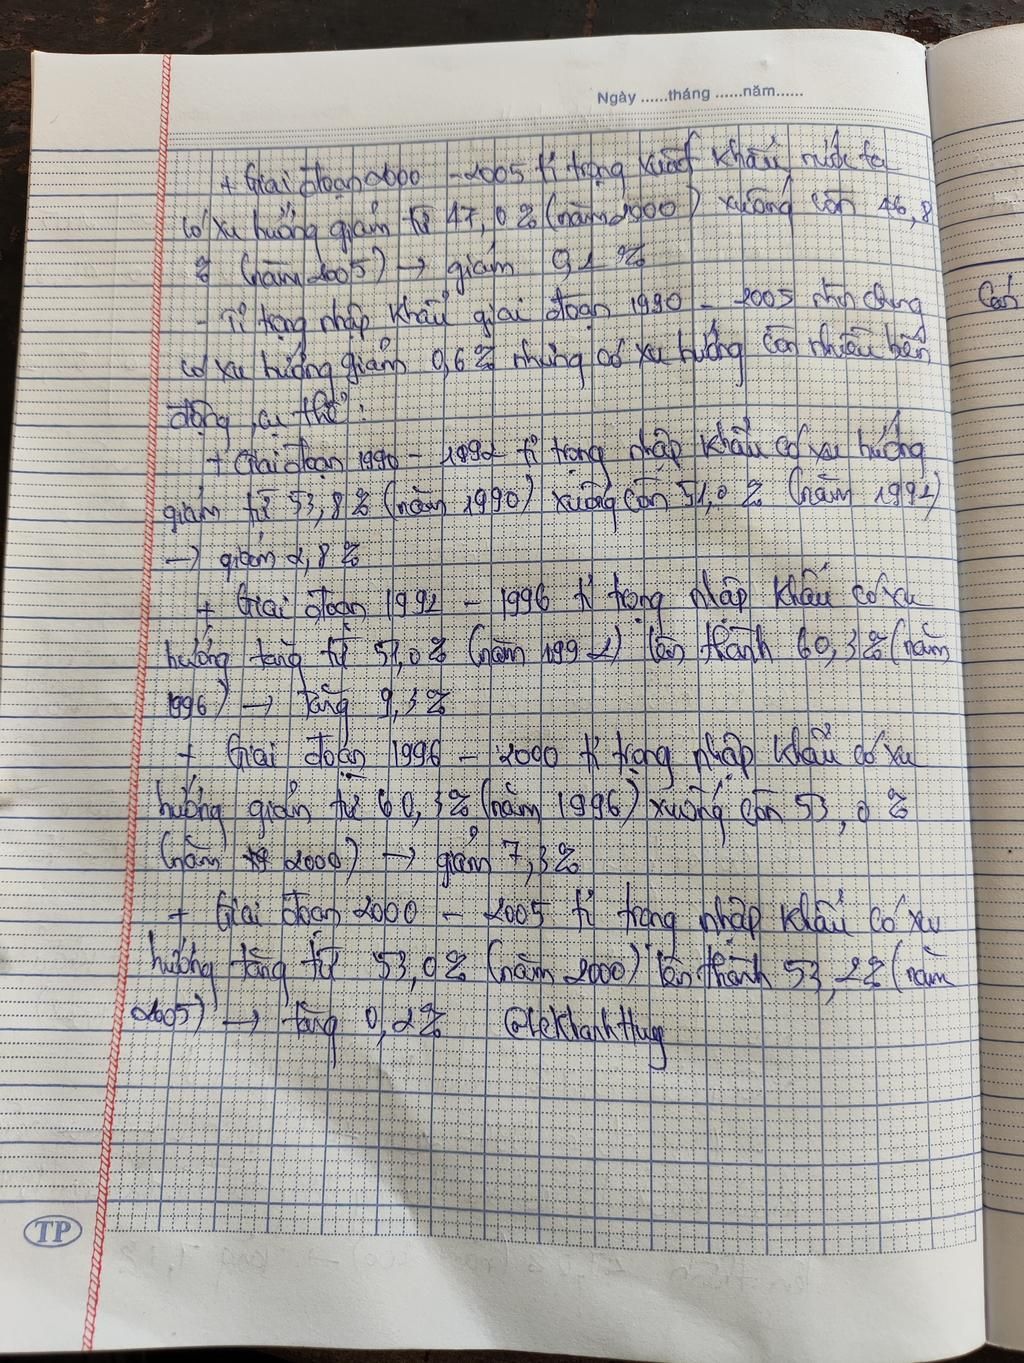 Ngày ......tháng ......năm......
+ Giai đoạn 2000 - 2005 tỉ trọng xuất khẩu nước ta
có xu hướng giảm từ 47,0% (năm 2000) xuống còn 46,8
% (năm 2005) → giảm 0,2 %
- Tỉ trọng nhập khẩu giai đoạn 1990 - 2005 nhìn chung
có xu hướng giảm 0,6% nhưng có xu hướng còn nhiều biến
động, cụ thể:
+ Giai đoạn 1990 - 1992 tỉ trọng nhập khẩu có xu hướng
giảm từ 53,8% (năm 1990) xuống còn 51,0 % (năm 1992)
→ giảm 2,8 %
+ Giai đoạn 1992 - 1996 tỉ trọng nhập khẩu có xu
hướng tăng từ 51,0% (năm 1992) lên thành 60,3% (năm
1996) → tăng 9,3%
+ Giai đoạn 1996 - 2000 tỉ trọng nhập khẩu có xu
hướng giảm từ 60,3% (năm 1996) xuống còn 53,0 %
(năm 2000) → giảm 7,3%
+ Giai đoạn 2000 - 2005 tỉ trọng nhập khẩu có xu
hướng tăng từ 53,0% (năm 2000) lên thành 53,2% (năm
2005) → tăng 0,2% @leKhanhHuy
TP